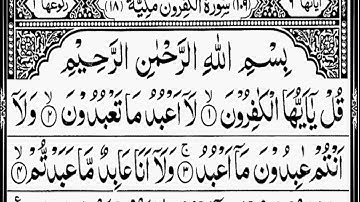 اٰیاتها ٦ (١٠٩) سُوْرَةُ الْكٰفِرُوْنَ مَكِّيَّةٌ (١٨) ركوعها ١
بِسْمِ اللهِ الرَّحْمٰنِ الرَّحِيْمِ
قُلْ يٰۤاَيُّهَا الْكٰفِرُوْنَ ۙ﴿١﴾ لَاۤ اَعْبُدُ مَا تَعْبُدُوْنَ ۙ﴿٢﴾ وَلَاۤ
اَنْتُمْ عٰبِدُوْنَ مَاۤ اَعْبُدُ ۚ﴿٣﴾ وَلَاۤ اَنَا عَابِدٌ مَّا عَبَدْتُّمْ ۙ﴿٤﴾